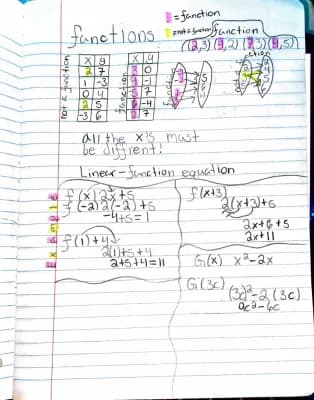 = function
= not a function
functions
function
(2,3) (9,2) (7,3) (4,5)
not a function
X y
2 7
1 -3
0 4
2 5
-3 6
function
X y
2 0
7
-4
7
all the x's must
be diffrent!
Linear-function equation
Example
f(x) 2x+5
f(-2) 2(-2)+5
-4+5=1
f(1)+4
2(1)+5+4
2+5+4=11
f(x+3)
2(x+3)+5
2x+6+5
2x+11
G(x) x²-2x
G(3c)
(3c)²-2(3c)
9c²-6c